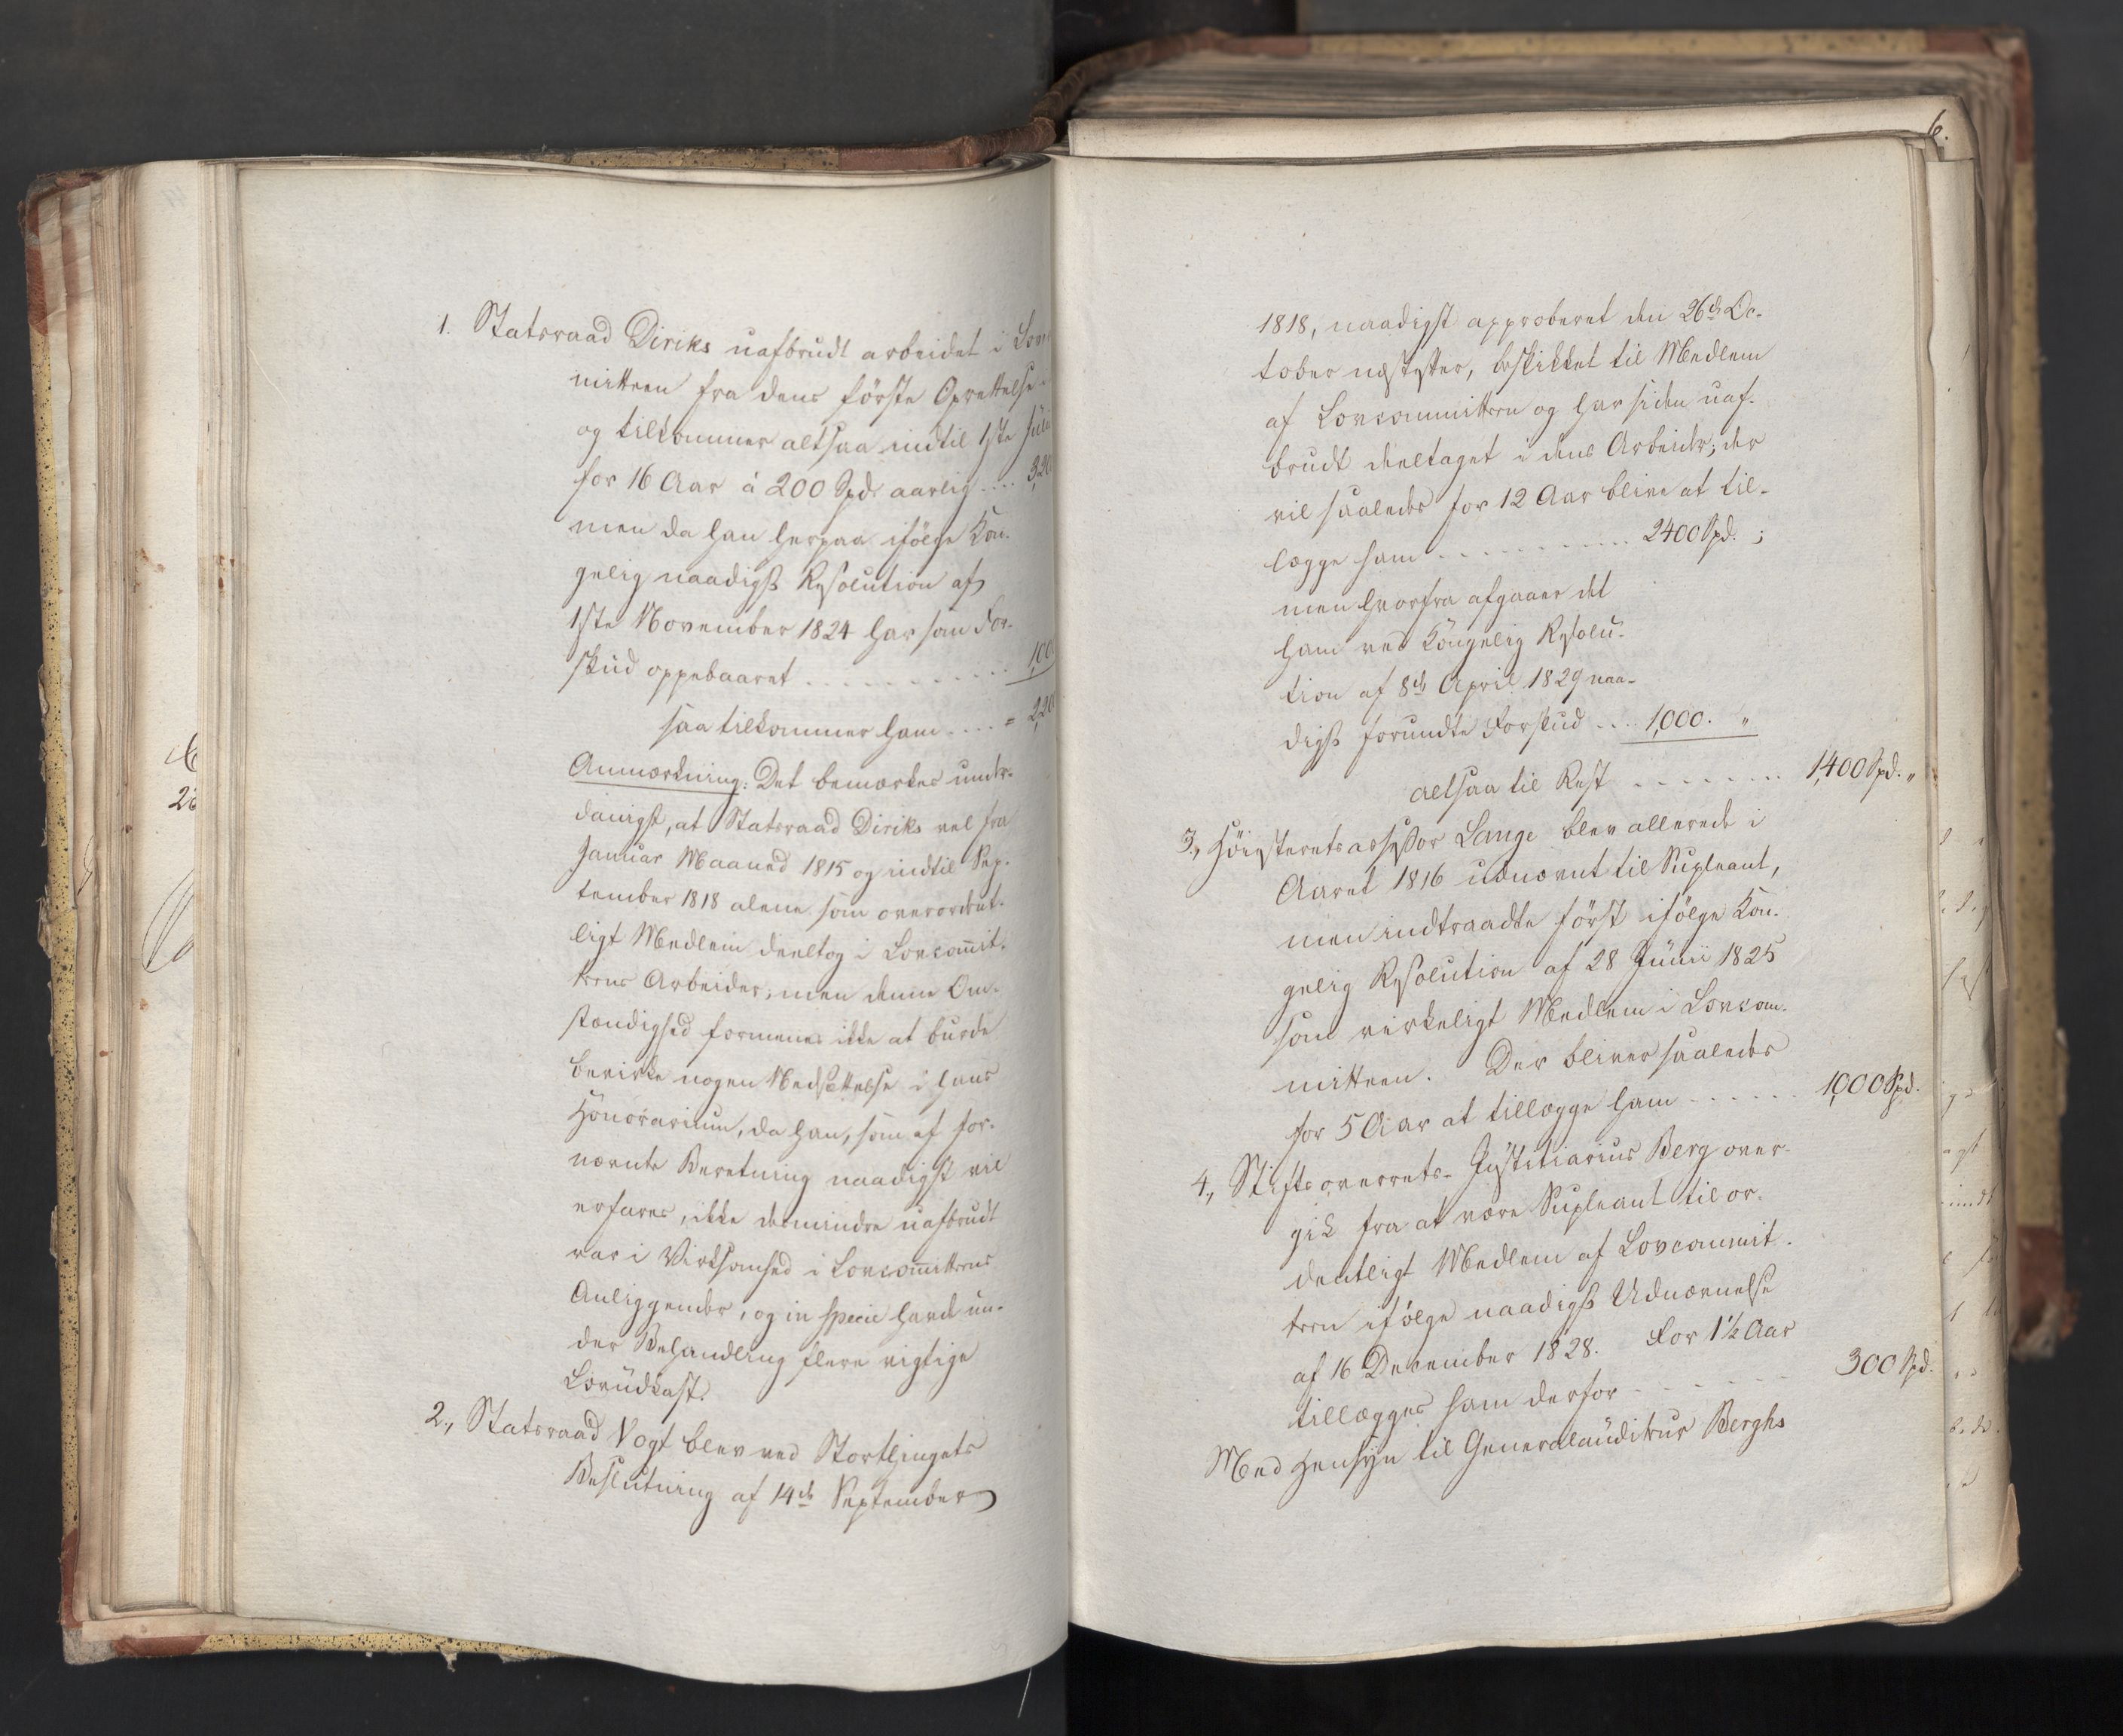 1. Statsraad Diriks uafbrudt arbeidet i Lov
mitteen fra dens förste Oprettelse
og tilkommer altsaa indtil 1ste Juli
for 16 Aar á 200 Spd. aarlig .... 3,20
men da han herpaa ifölge Kon-
gelig naadigst Resolution af
1ste November 1824 har som For-
skud oppebaaret ........... 1,00
saa tilkommer ham .... = 2,20
Anmærkning: Det bemærkes under-
danigst, at Statsraad Diriks vel fra
Januar Maaned 1815 og indtil Sep-
tember 1818 alene som overordent-
ligt Medlem deeltog i Lovcom̅it-
teens Arbeider; men denne Om-
stændighed formenes ikke at burde
bevirke nogen Nedsættelse i hans
Honorarium, da han, som af for-
nævnte Beretning naadigst vil
erfares, ikke desmindre uafbrudt
var i Virksomhed i Lovcom̅itteens
Anliggender, og in specie havde un-
der Behandling flere vigtige
Lovudkast.
2., Statsraad Vogt blev ved Storthingets
Beslutning af 14de September
6.
1818, naadigst approberet den 26de Oc-
tober næstefter, beskikket til Medlem
af Lovcommitteen og har siden uaf-
brudt deeltaget i dens Arbeider; der
vil saaledes for 12 Aar blive at til-
lægge ham ........... 2400 Spd. ;
men hvorfra afgaaer det
ham ved Kongelig Resolu-
tion af 8de April 1829 naa-
digst forundte Forskud .... 1,000. "
altsaa til Rest ........ 1,400 Spd. "
3., Höiesteretsassessor Lange blev allerede i
Aaret 1816 udnævnt til Supleant,
men indtraadte först ifölge Kon-
gelig Resolution af 28 Junii 1825
som virkeligt Medlem i Lovcom-
mitteen. Der bliver saaledes
for 5 Aar at tillægge ham ...... 1,000 Spd.
4., Stiftsoverrets-Justitiarius Berg over-
gik fra at være Supleant til or-
dentligt Medlem af Lovcommit-
teen ifölge naadigst Udnævnelse
af 16 December 1828. For 1½ Aar
tillægges ham derfor ....... 300 Spd.
Med Hensyn til Generalauditeur Berghs